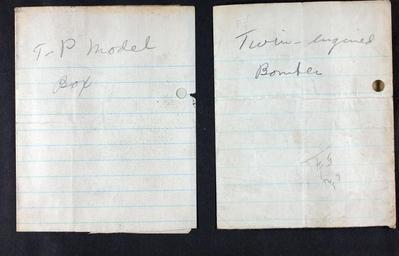 T-P Model
Box
Twin-engined
Bomber